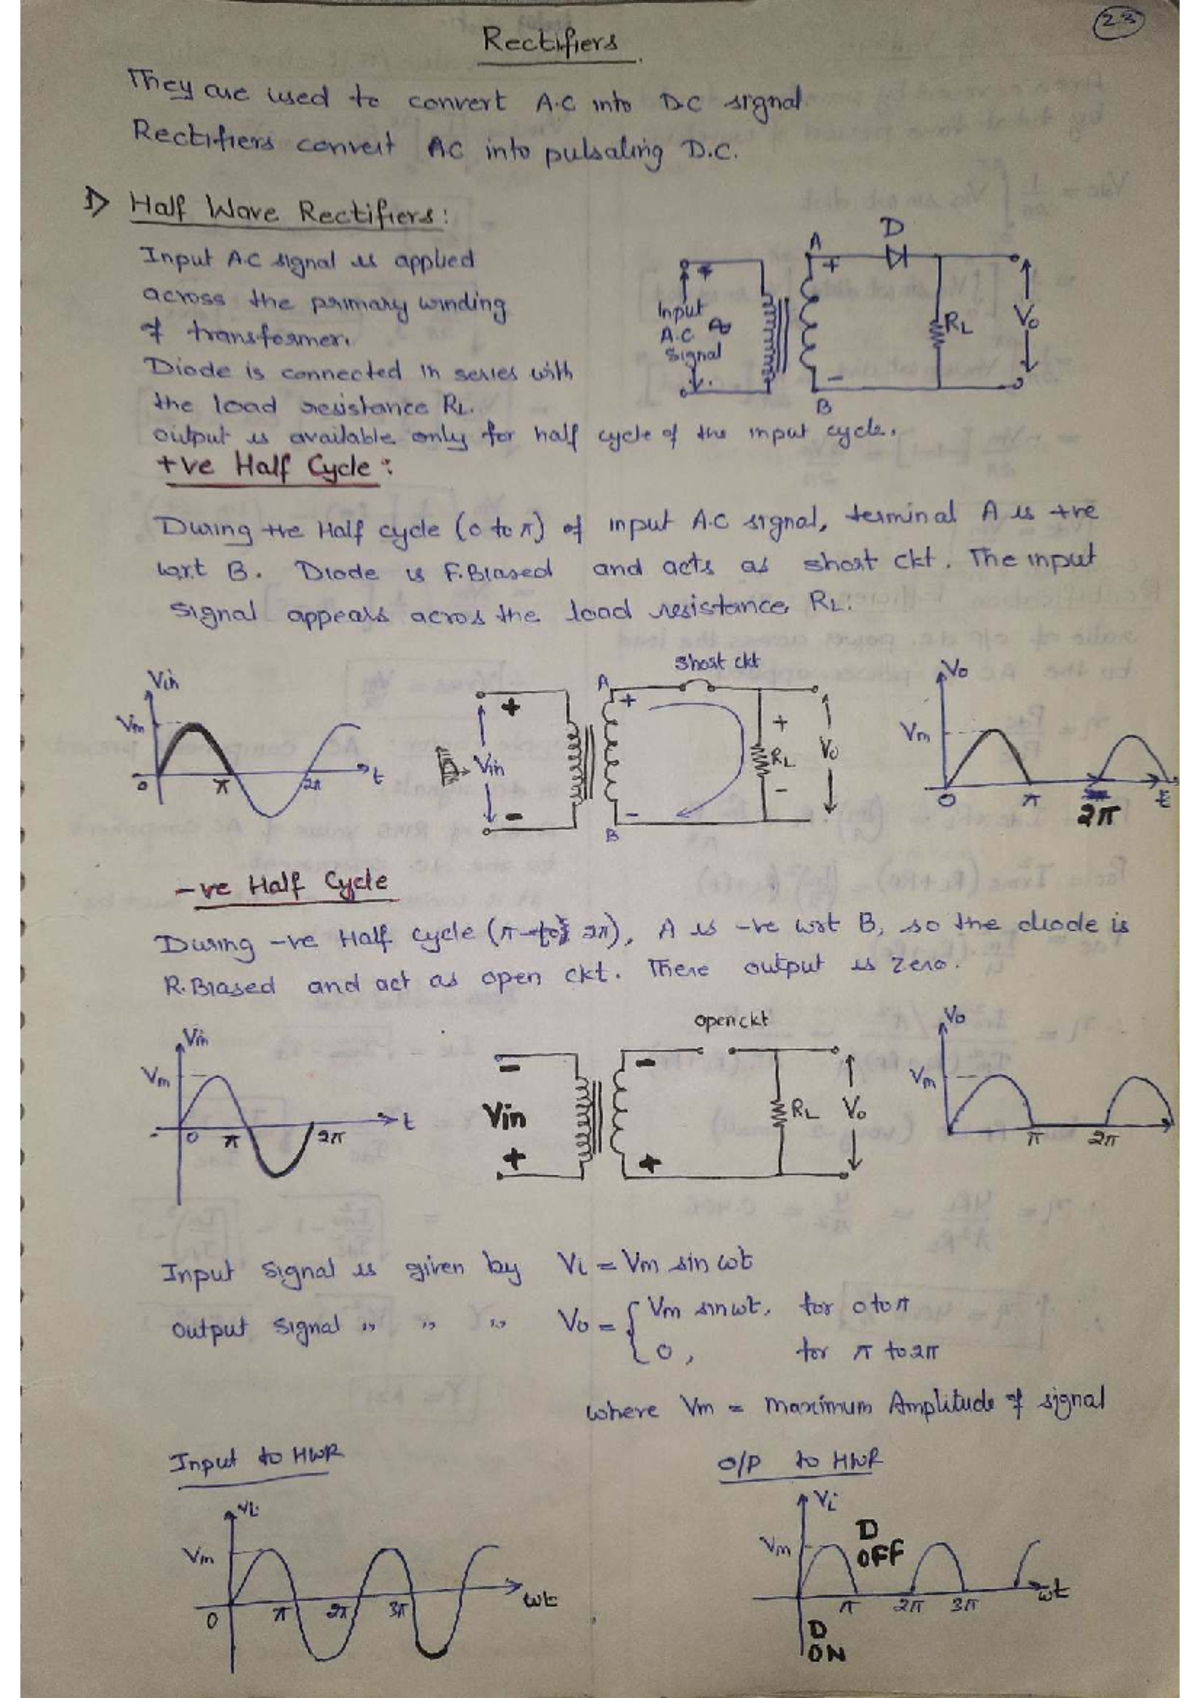 23
Rectifiers
They are used to convert A.C into D.C signal.
Rectifiers convert AC into pulsating D.C.
1> Half Wave Rectifiers:
Input A.C signal is applied
across the primary winding
of transformer.
Diode is connected in series with
the load resistance RL.
output is available only for half cycle of the input cycle.
A D
+
Input
A.C.
Signal
RL Vo
-
B
+ve Half Cycle:
During +ve Half cycle (0 to π) of input A.C signal, terminal A is +ve
w.r.t B. Diode is F.Biased and acts as short ckt. The input
signal appears acros the load resistance RL.
Vin
Vm
0 π 2π t
short ckt
A
+ +
Vin RL Vo
- - -
B
Vo
Vm
0 π 2π t
-ve Half Cycle
During -ve Half cycle (π to 2π), A is -ve wrt B, so the diode is
R.Biased and act as open ckt. There output is zero.
Vin
Vm
0 π 2π t
open ckt
- -
Vin RL Vo
+ +
Vo
Vm
π 2π
Input signal is given by Vi = Vm sin ωt
output signal " " " Vo = { Vm sin ωt, for 0 to π
0, for π to 2π
where Vm = maximum Amplitude of signal
Input to HWR
Vi
Vm
0 π 2π 3π ωt
O/P to HWR
Vi
Vm D OFF
π 2π 3π ωt
D
ON